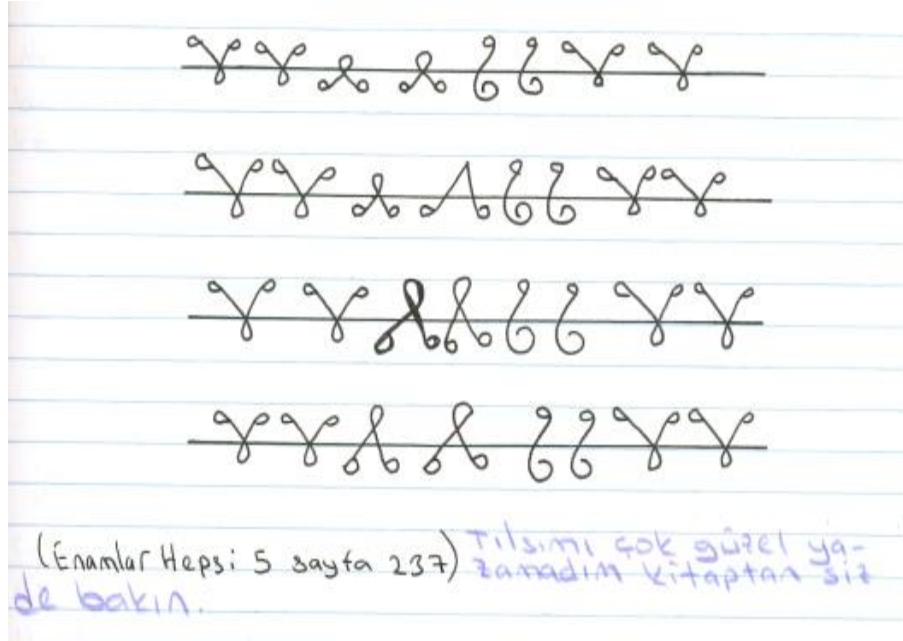 (Enamlar Hepsi 5 sayfa 237) Tılsımı çok güzel ya-
zamadım kitaptan siz
de bakın.